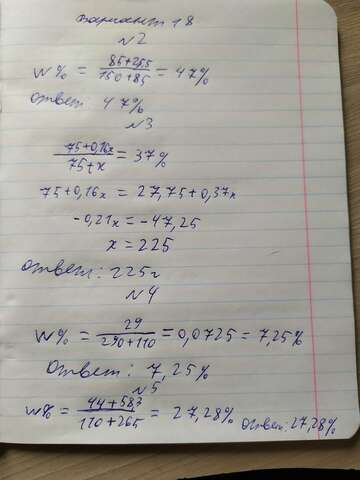 Вариант 18
№2
W% = (85+25,5)/(150+85) = 47%
Ответ: 47%
№3
(75+0,16x)/(75+x) = 37%
75+0,16x = 27,75+0,37x
-0,21x = -47,25
x = 225
Ответ: 225г
№4
W% = 29/(290+110) = 0,0725 = 7,25%
Ответ: 7,25%
№5
W% = (44+58,3)/(110+265) = 27,28% Ответ: 27,28%